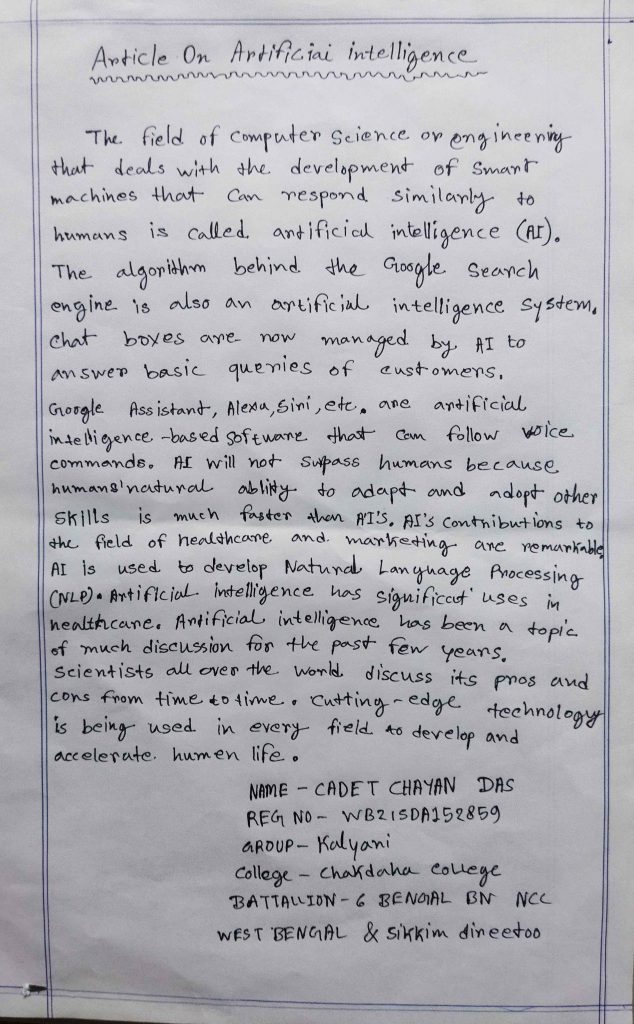 Article On Artificiai intelligence
The field of computer Science or engineering
that deals with the development of Smart
machines that Can respond similarly to
humans is called artificial intelligence (AI).
The algorithm behind the Google Search
engine is also an artificial intelligence System.
Chat boxes are now managed by AI to
answer basic queries of customers.
Google Assistant, Alexa, Siri, etc. are artificial
intelligence-based Software that Can follow voice
commands. AI will not supass humans because
humans' natural ablity to adapt and adopt other
Skills is much faster than AI's. AI's Contributions to
the field of healthcare and marketing are remarkable
AI is used to develop Natural Language Processing
(NLP). Artificial intelligence has significat uses in
healthcare. Artificial intelligence has been a topic
of much discussion for the past few years.
Scientists all over the world discuss its pros and
cons from time to time. Cutting-edge technology
is being used in every field to develop and
accelerate humen life.
NAME - CADET CHAYAN DAS
REG NO - WB21SDA152859
GROUP - Kalyani
College - Chakdaha College
BATTALLION - 6 BENGAL BN NCC
WEST BENGAL & Sikkim direetoo